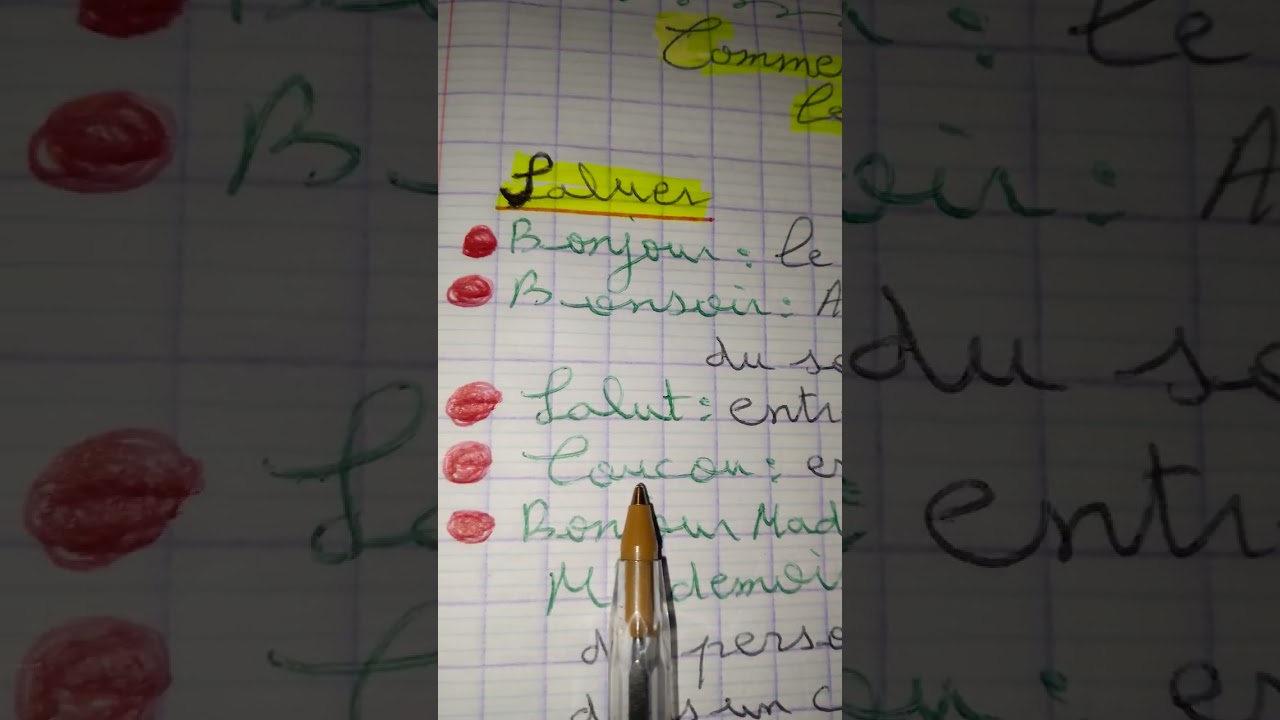 Comme
le
Saluer
Bonjour : le
Bonsoir : A
du so
Salut : entr
Coucou : en
Bonjour Mad
M demoi
d perso
d s un c